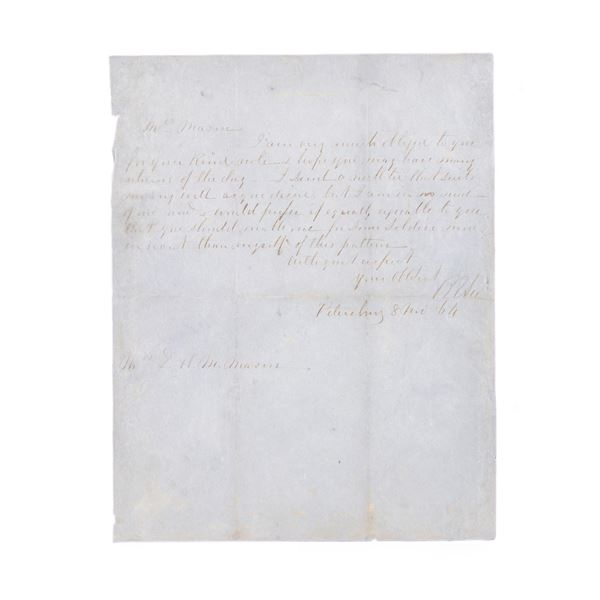 Mrs. Mason
I am very much obliged to you
for your kind note & hope you may have many
returns of the day. I send a neck tie that suits
me very well as you desire, but I am in no need
of one now & would prefer if equally agreeable to you
that you should make one for some soldier more
in want than myself of this pattern
With great respect
Your Obt Servt
R E Lee
Petersburg 8 '64
Mrs. Mason